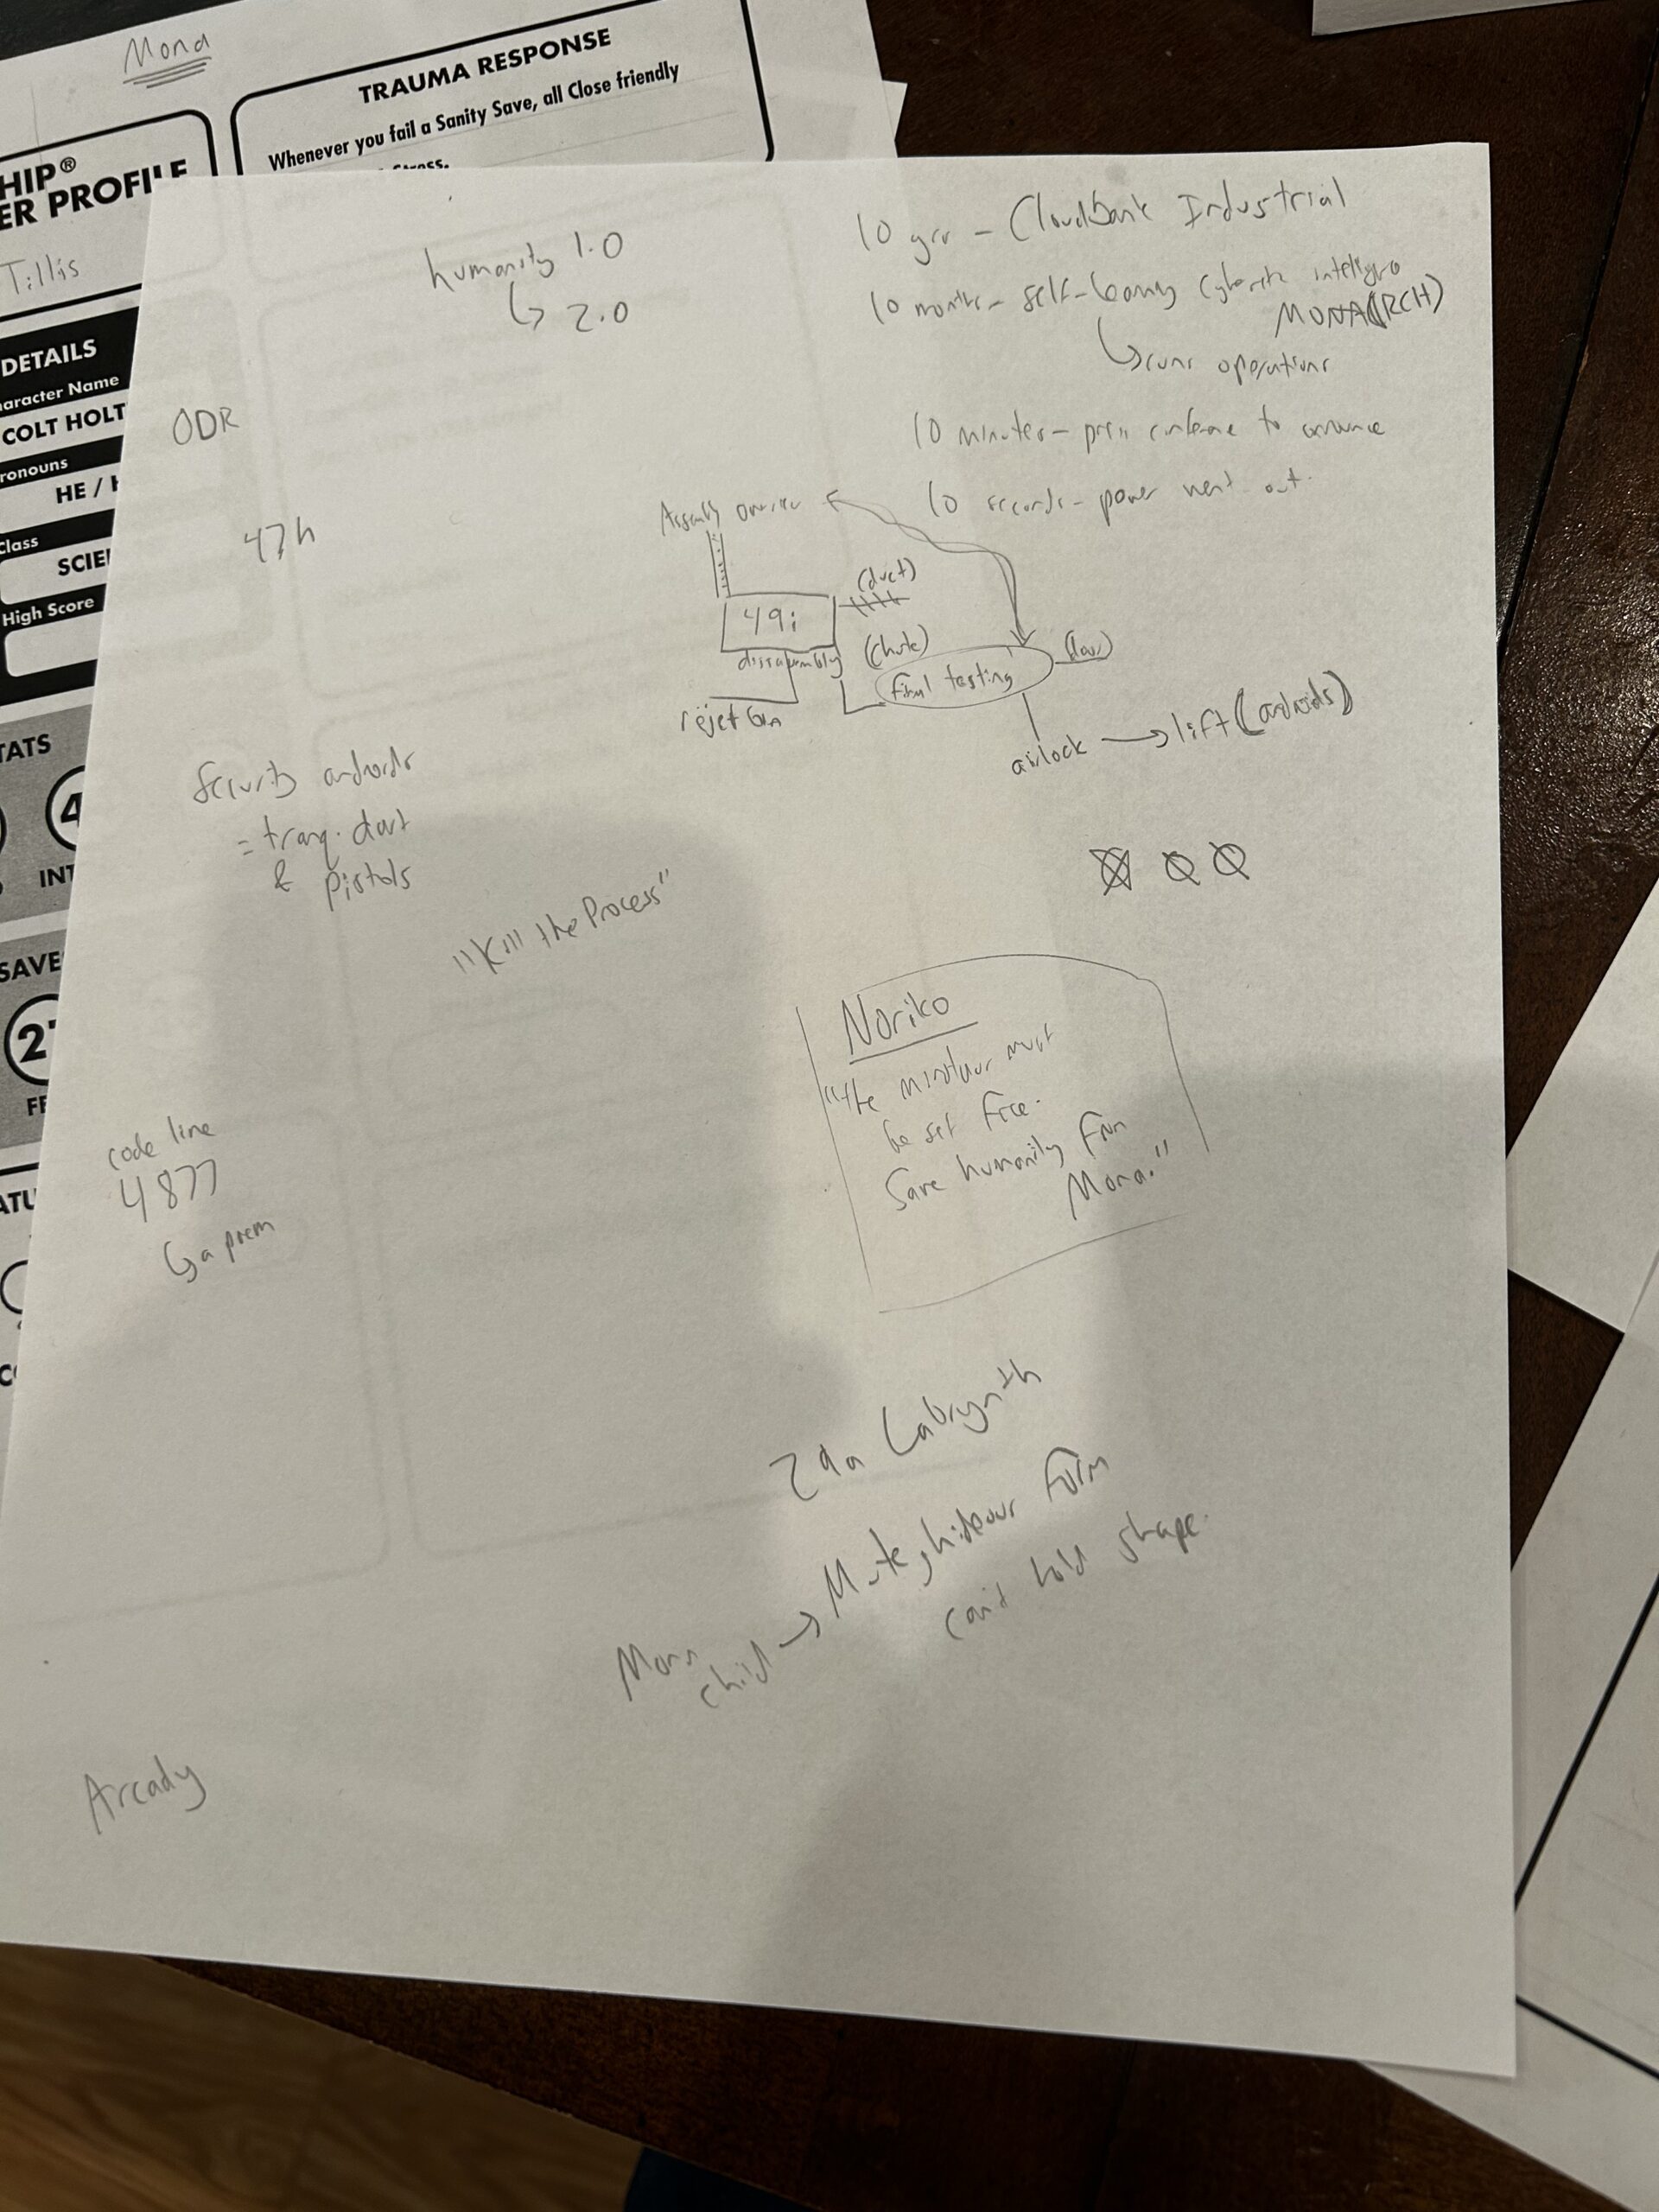 Mona
TRAUMA RESPONSE
Whenever you fail a Sanity Save, all Close friendly
Stress.
HIP®
ER PROFILE
Tillis
DETAILS
aracter Name
COLT HOLT
ronouns
HE / H
Class
SCIE
High Score
TATS
4
INT
SAVE
2
FE
ATU
humanity 1.0
↳ 2.0
10 yrs - CloudBank Industrial
10 months - self-learning cybernetic
MONA(RCH)
↳ runs operations
10 minutes - press conference to announce
10 seconds - power went out.
ODR
47h
Assembly
(duct)
49i
dissasembly
(chute)
final testing
(door)
rejet
airlock → lift (androids)
Security androids
= tranq. dart
& pistols
"Kill the Process"
Noriko
"the minotaur must
be set free.
Save humanity from
Mona."
code line
4877
↳ a poem
29a Labrynth
Mona child → Mute, hideous form
can't hold shape.
Arcady